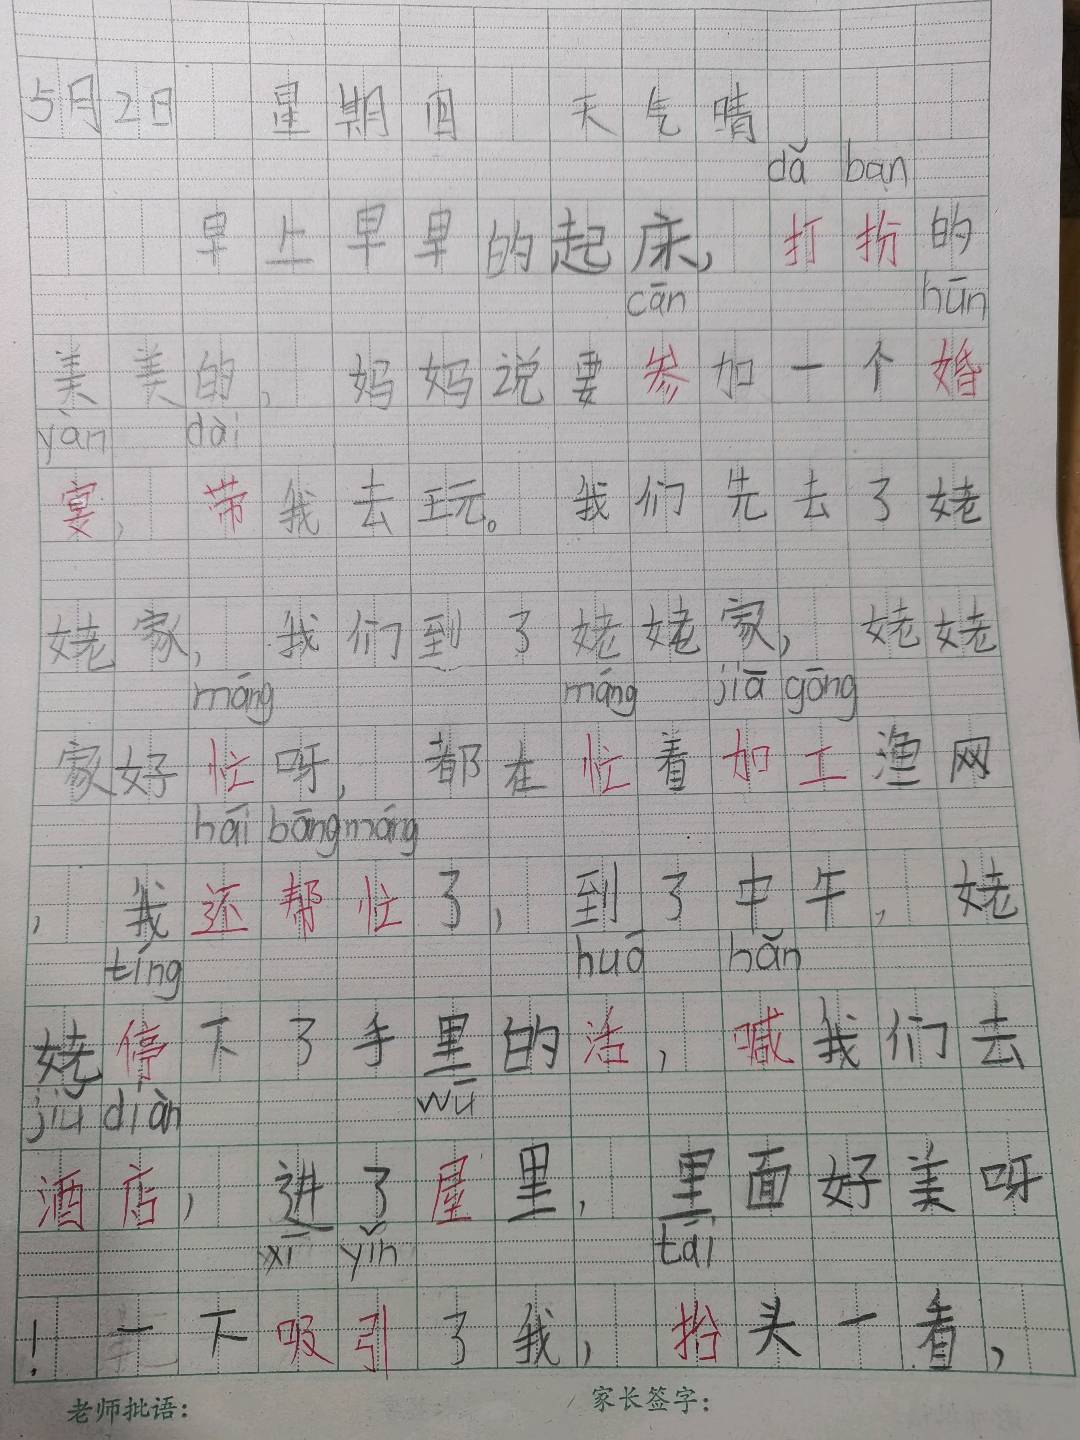 5月2日 星期四 天气晴
dǎ ban
早上早早的起床,打扮的
cān hūn
美美的,妈妈说要参加一个婚
yàn dài
宴,带我去玩。我们先去了姥
姥家,我们到了姥姥家,姥姥
máng máng jiā gōng
家好忙呀,都在忙着加工渔网
hái bāng máng
,我还帮忙了,到了中午,姥
tíng huó hǎn
姥停下了手里的活,喊我们去
jiǔ diàn wū
酒店,进了屋里,里面好美呀
xī yǐn tái
!一下吸引了我,抬头一看,
老师批语: 家长签字: